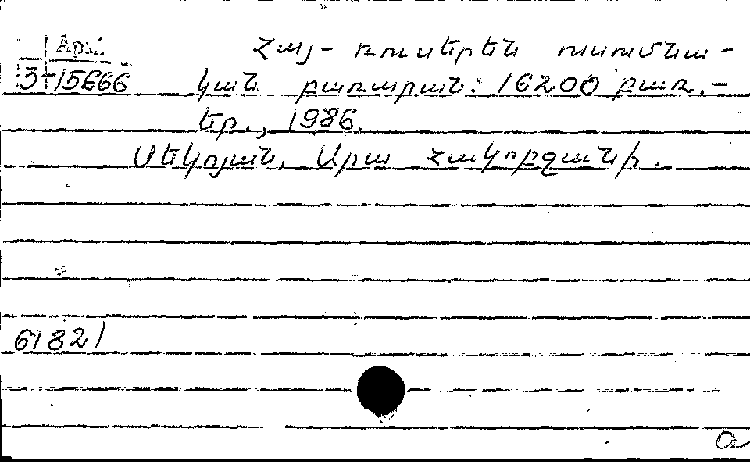 Арм. Հայ-ռուսերեն ուսումնա-
3-15666 կան բառարան: 16200 բառ.-
Եր., 1986.
Սեկոյան, Արա Հակոբջանի.
61821